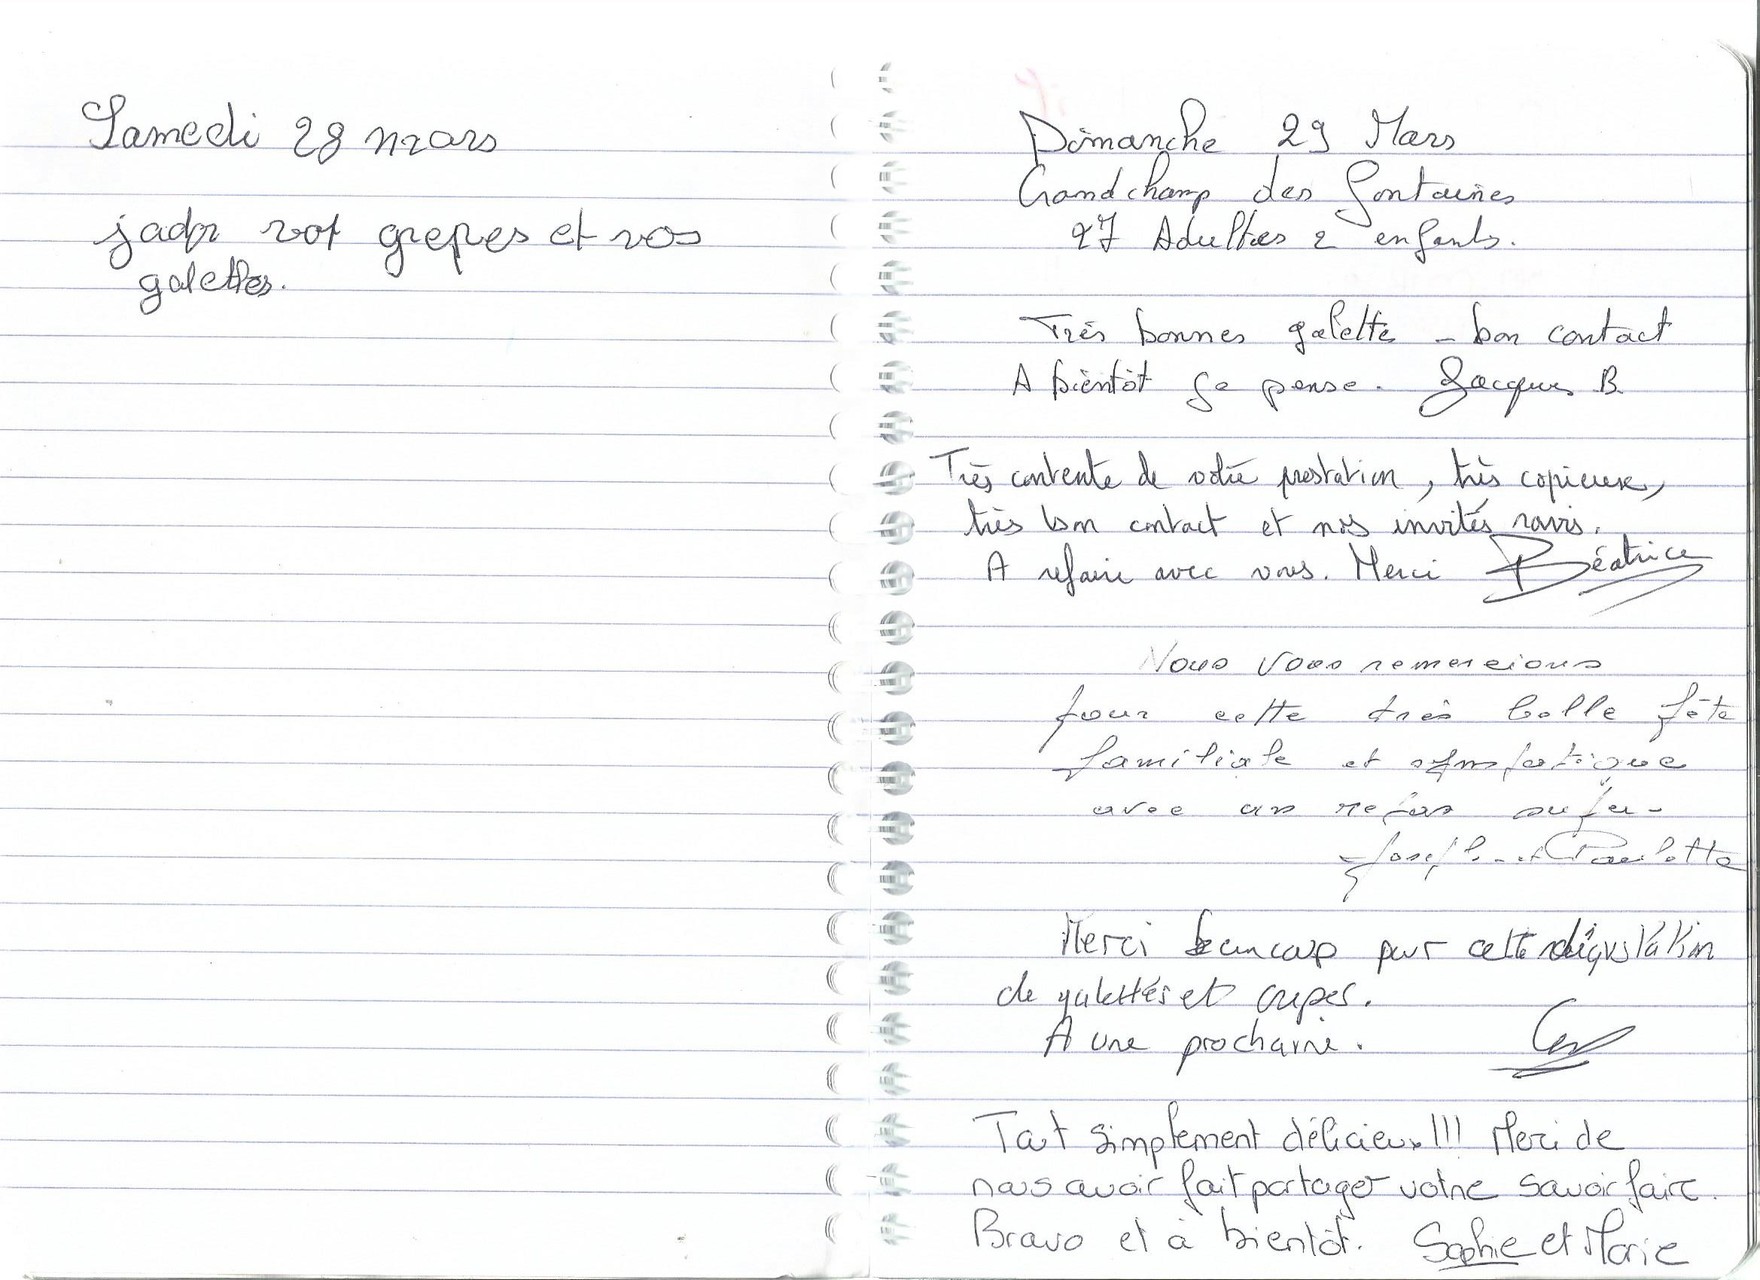 Samedi 28 mars
jadpr vot grepes et vos
galettes.
Dimanche 29 Mars
Grandchamp des fontaines
27 Adultes 2 enfants.
Très bonnes galette - bon contact
A bientôt je pense. Jacques B.
Très contente de votre prestation, très copieuse,
très bon contact et nos invités ravis.
A refaire avec vous. Merci Béatrice
Nous Vous remercions
pour cette très belle fête
familiale et sympatique
avec un repas super
Joseph et Paulette
Merci beaucoup pour cette dégustation
de galettes et crepes.
A une prochaine.
Tout simplement délicieux!!! Merci de
nous avoir fait partager votre savoir faire.
Bravo et à bientôt. Sophie et Marie